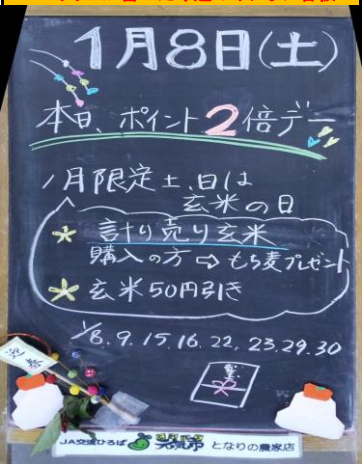 1月8日(土)
本日、ポイント2倍デー
1月限定土、日は
玄米の日
計り売り玄米
購入の方⇨もち麦プレゼント
玄米50円引き
1/8.9.15.16.22.23.29.30
迎春
JA交流ひろば 元気市 となりの農家店